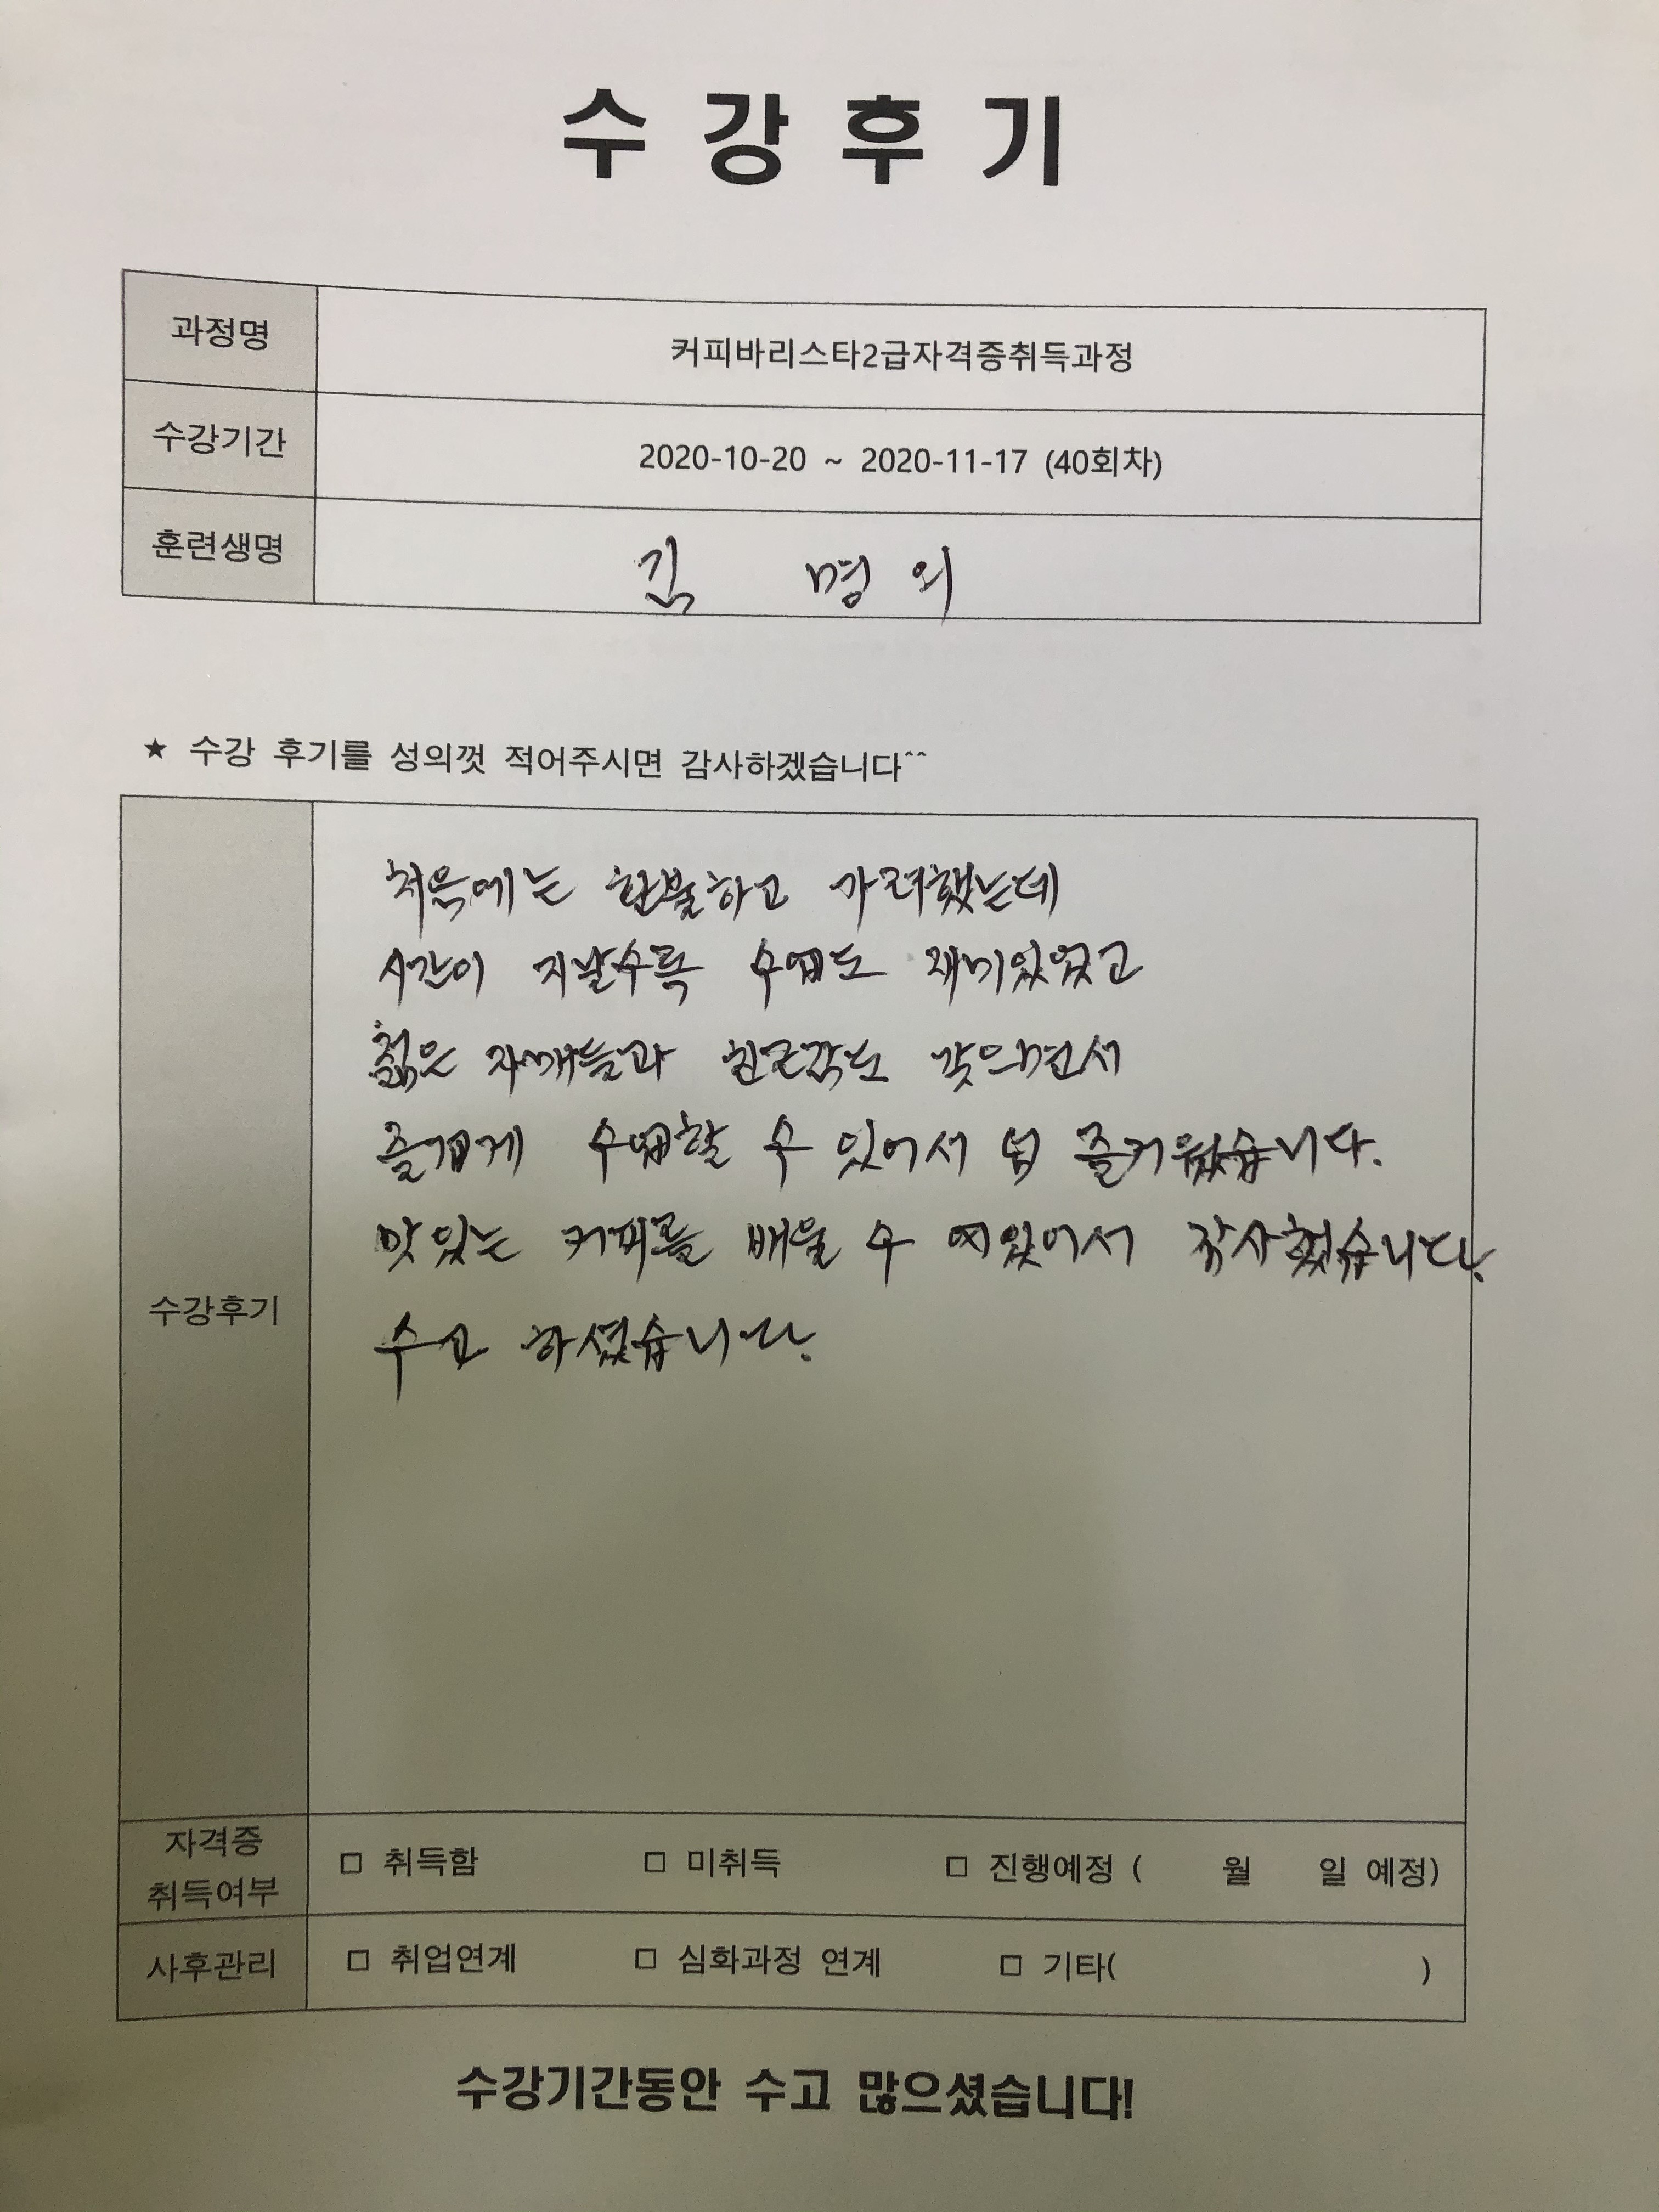 수강후기
과정명 커피바리스타2급자격증취득과정
수강기간 2020-10-20 ~ 2020-11-17 (40회차)
훈련생명 김 명 의
★ 수강 후기를 성의껏 적어주시면 감사하겠습니다^^
처음에는 하고 했는데
시간이 지날수록 수업도 재미있었고
젊은 자매들과 친근감도 갖으면서
즐겁게 수업할 수 있어서 넘 즐거웠습니다.
맛있는 커피를 배울 수 있어서 감사했습니다.
수고 하셨습니다.
수강후기
자격증
취득여부
□ 취득함 □ 미취득 □ 진행예정 ( 월 일 예정)
사후관리 □ 취업연계 □ 심화과정 연계 □ 기타( )
수강기간동안 수고 많으셨습니다!